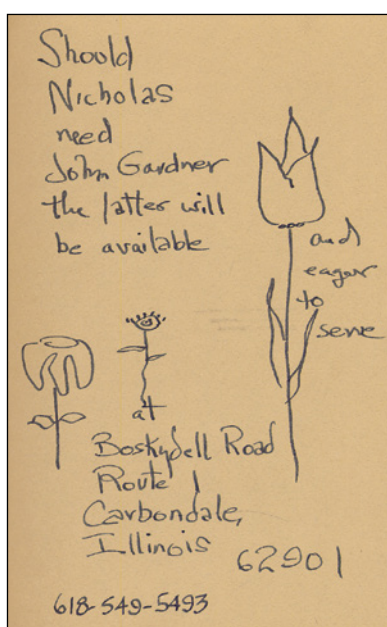 Should
Nicholas
need
John Gardner
the latter will
be available
and
eagar
to
serve
at
Boskydell Road
Route 1
Carbondale,
Illinois
62901
618-549-5493